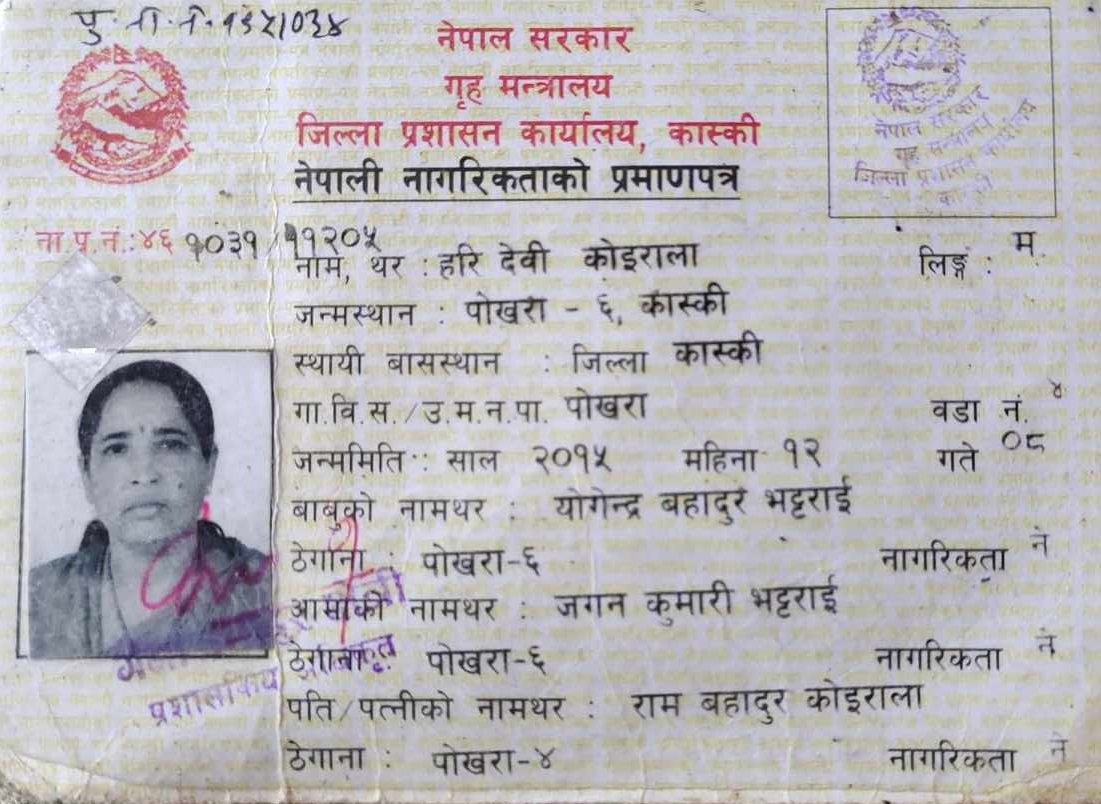 पु. ना. नं. १३४/०३४
नेपाल सरकार
गृह मन्त्रालय
जिल्ला प्रशासन कार्यालय, कास्की
नेपाली नागरिकताको प्रमाणपत्र
नेपाल सरकार
गृह मन्त्रालय
जिल्ला प्रशासन कार्यालय
ना.प्र.नं.:४६ १०३१/११२०५
नाम, थर : हरि देवी कोइराला लिङ्ग : म.
जन्मस्थान : पोखरा - ६, कास्की
स्थायी बासस्थान : जिल्ला कास्की
गा.वि.स./उ.म.न.पा. पोखरा वडा नं. ४
जन्ममिति : साल २०१५ महिना १२ गते ०८
बाबुको नामथर : योगेन्द्र बहादुर भट्टराई
ठेगाना : पोखरा-६ नागरिकता ने
आमाको नामथर : जगन कुमारी भट्टराई
ठेगाना : पोखरा-६ नागरिकता ने
प्रशासकिय अधिकृत
पति/पत्नीको नामथर : राम बहादुर कोइराला
ठेगाना : पोखरा-४ नागरिकता ने